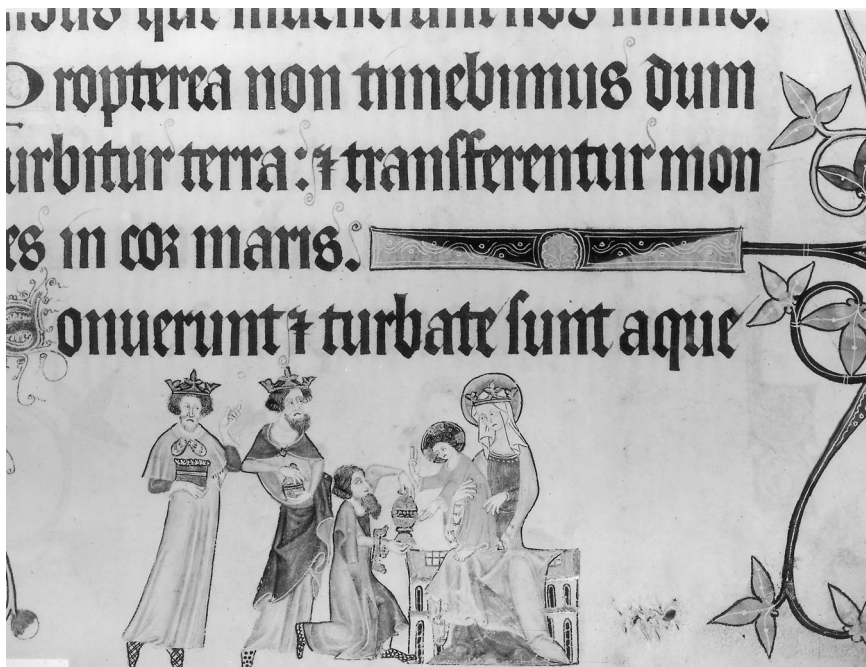 que inuenerunt nos nimis.
Propterea non timebimus dum
urbitur terra: ⁊ transferentur mon
es in cor maris.
Sonuerunt ⁊ turbate sunt aque